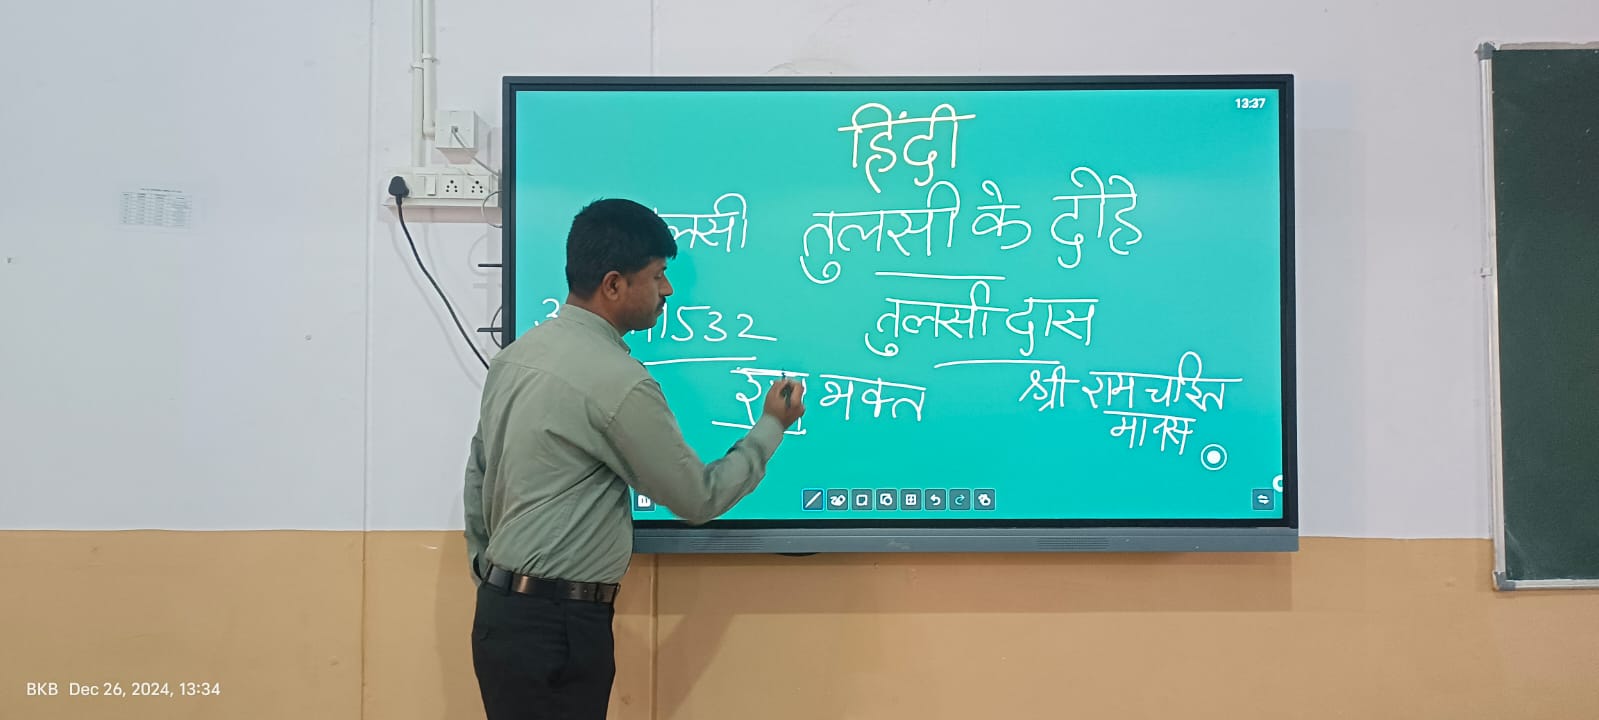 13:37
हिंदी
तुलसी के दोहे
1532
तुलसी दास
भक्त
श्री राम चरित
मानस
BKB Dec 26, 2024, 13:34